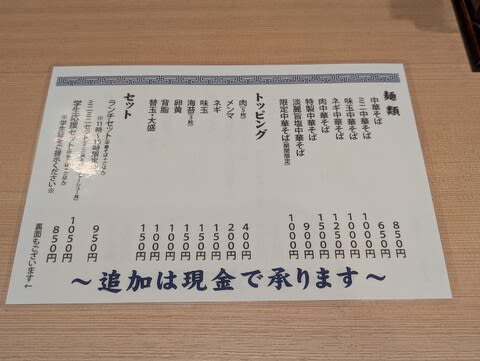 麺類
中華そば 850円
ミニ中華そば 650円
味玉中華そば 1000円
ネギ中華そば 1000円
肉中華そば 1250円
特製中華そば
淡麗旨塩中華そば 900円
限定中華そば(期間限定) 1000円
トッピング
肉(5枚) 400円
メンマ 200円
ネギ 150円
味玉 150円
海苔 150円
卵黄 100円
背脂 100円
替玉・大盛 150円
セット
ランチセット 950円
※11時~15時限定※
ミニミニセット 1050円
学生応援セット 850円
※学生証をご提示ください※
裏面もございます←
~追加は現金で承ります~